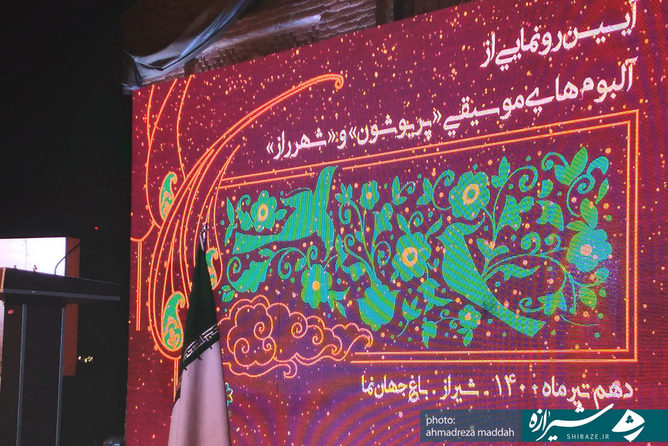 آیین رونمایی از
آلبوم‌های موسیقی «پریوشون» و «شهر راز»
دهم تیر ماه ۱۴۰۰ . شیراز . باغ جهان نما
photo:
ahmadreza maddah
شیرازه
SHIRAZE.IR